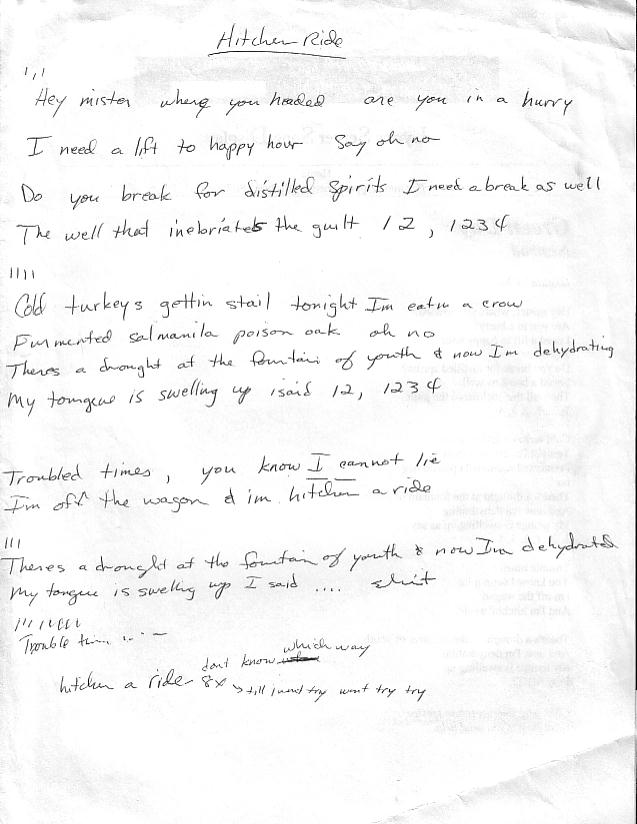 Hitchen Ride
| , |
Hey mister where you headed are you in a hurry
I need a lift to happy hour Say oh no
Do you break for distilled spirits I need a break as well
The well that inebriates the guilt 1 2 , 1 2 3 4
| | | |
Cold turkeys gettin stail tonight Im eatn a crow
Furmented salmanila poison oak oh no
Theres a drought at the fountain of youth & now Im dehydrating
My tongue is swelling up isaid 12, 1234
Troubled times , you know I cannot lie
I'm off the wagon & im hitchen a ride
| | |
Theres a drought at the fountain of youth & now Im dehydrated
My tongue is swelling up I said .... shit
Trouble tim ....
dont know which way
hitchen a ride - 8x